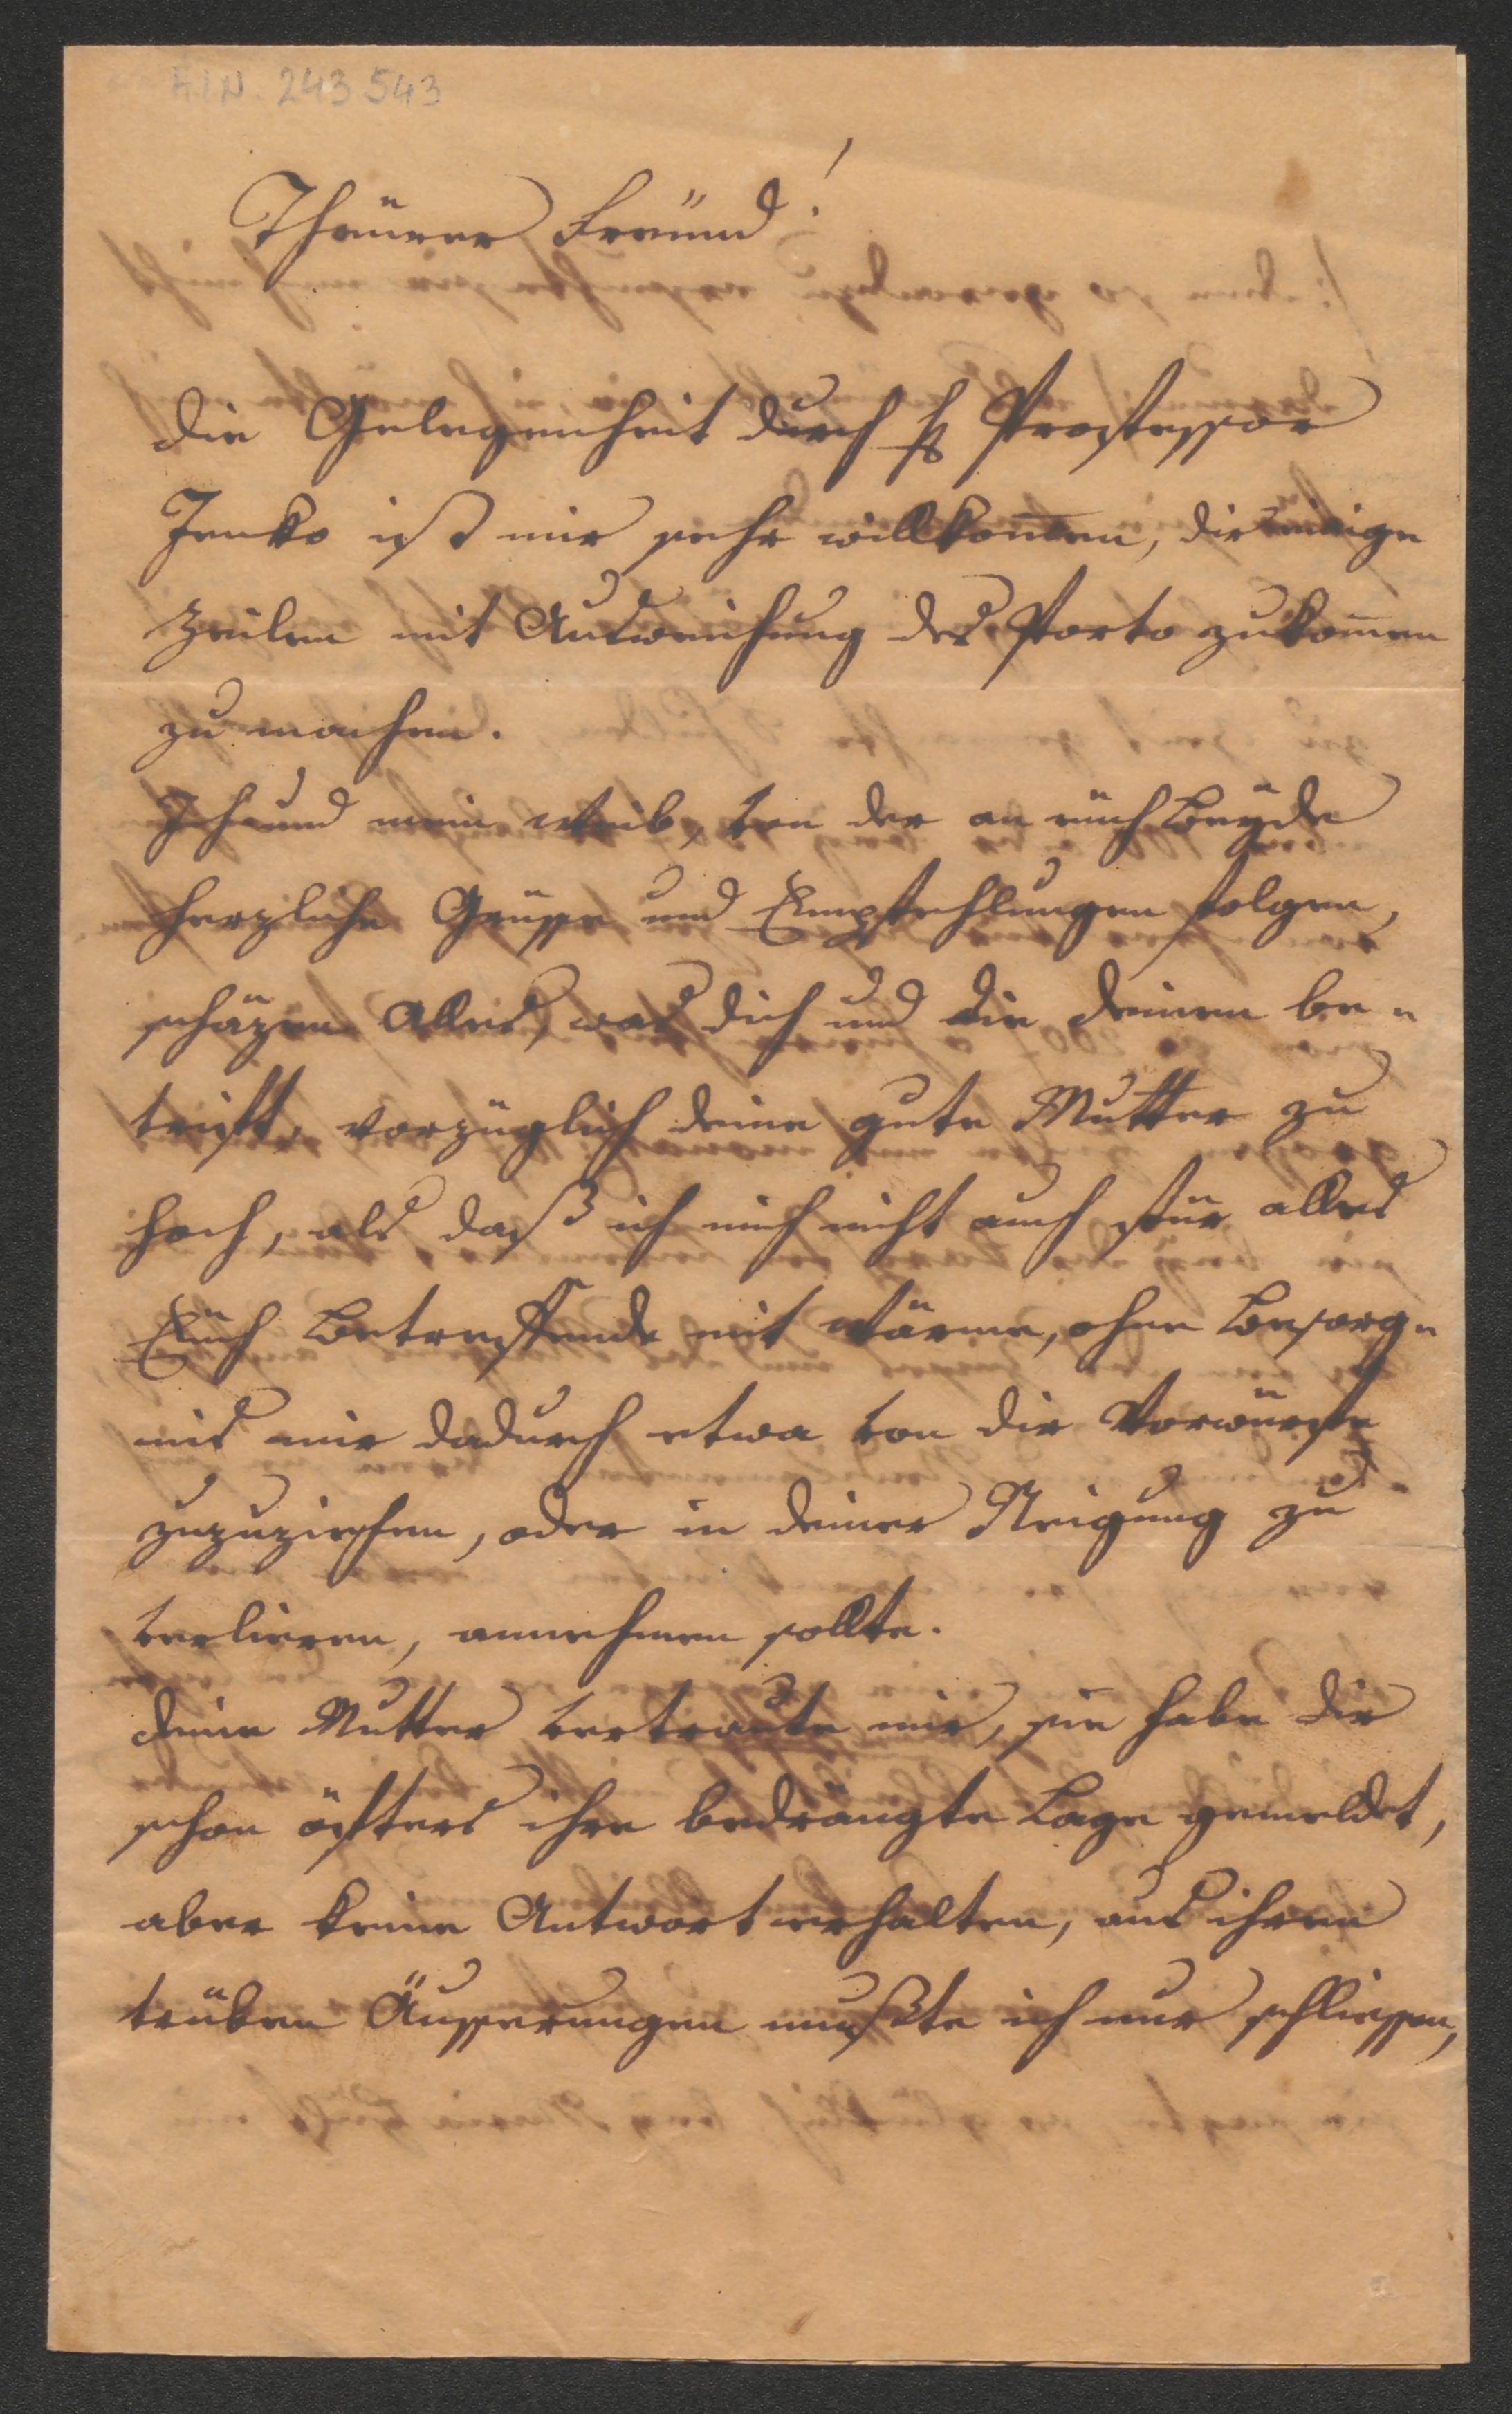 H.I.N. 243543
Theürer Freünd!
die Gelegenheit durch H Professor
Jenko ist mir sehr willkom̅en, dir einige
Zeilen mit Ausweichung des Porto zukom̅en
zu machen.
Ich und mein Weib, von der an eüch beÿde
herzliche Grüsse und Empfehlungen folgen,
schäzen Alles, was dich und die deinen be=
trifft, vorzüglich deine gute Mutter zu
hoch, als daß ich mich nicht auch für alles
Eüch betreffende mit Wärme, ohne besorg=
nis mir dadurch etwa von dir Vorwürfe
zuzuziehen, oder in deiner Neigung zu
verlieren, annehmen sollte.
deine Mutter vertraute mir, sie habe dir
schon öfters ihre bedrängte Lage gemeldet,
aber keine Antwort erhalten, aus ihren
trüben Äusserungen mußte ich nur schliessen,